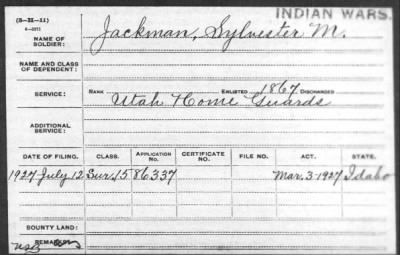 (3-311-11)
INDIAN WARS.
NAME OF SOLDIER: Jackman, Sylvester M.
NAME AND CLASS OF DEPENDENT:
SERVICE: RANK ENLISTED 1867 DISCHARGED
Utah Home Guards
ADDITIONAL SERVICE:
DATE OF FILING. CLASS. APPLICATION No. CERTIFICATE No. FILE NO. ACT. STATE.
1927 July 12 Sur. 1586337 Mar. 3-1927 Idaho
BOUNTY LAND:
REMARKS: